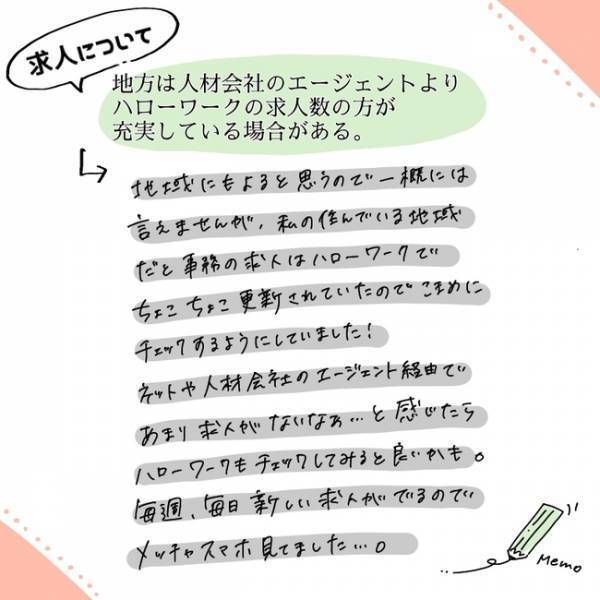 求人について
地方は人材会社のエージェントより
ハローワークの求人数の方が
充実している場合がある。
地域にもよると思うので一概には
言えませんが、私の住んでいる地域
だと事務の求人はハローワークで
ちょこちょこ更新されていたのでこまめに
チェックするようにしていました!
ネットや人材会社のエージェント経由で
あまり求人がないなぁ…と感じたら
ハローワークもチェックしてみると良いかも。
毎週、毎日新しい求人がでるので
メッチャスマホ見てました…。
Memo